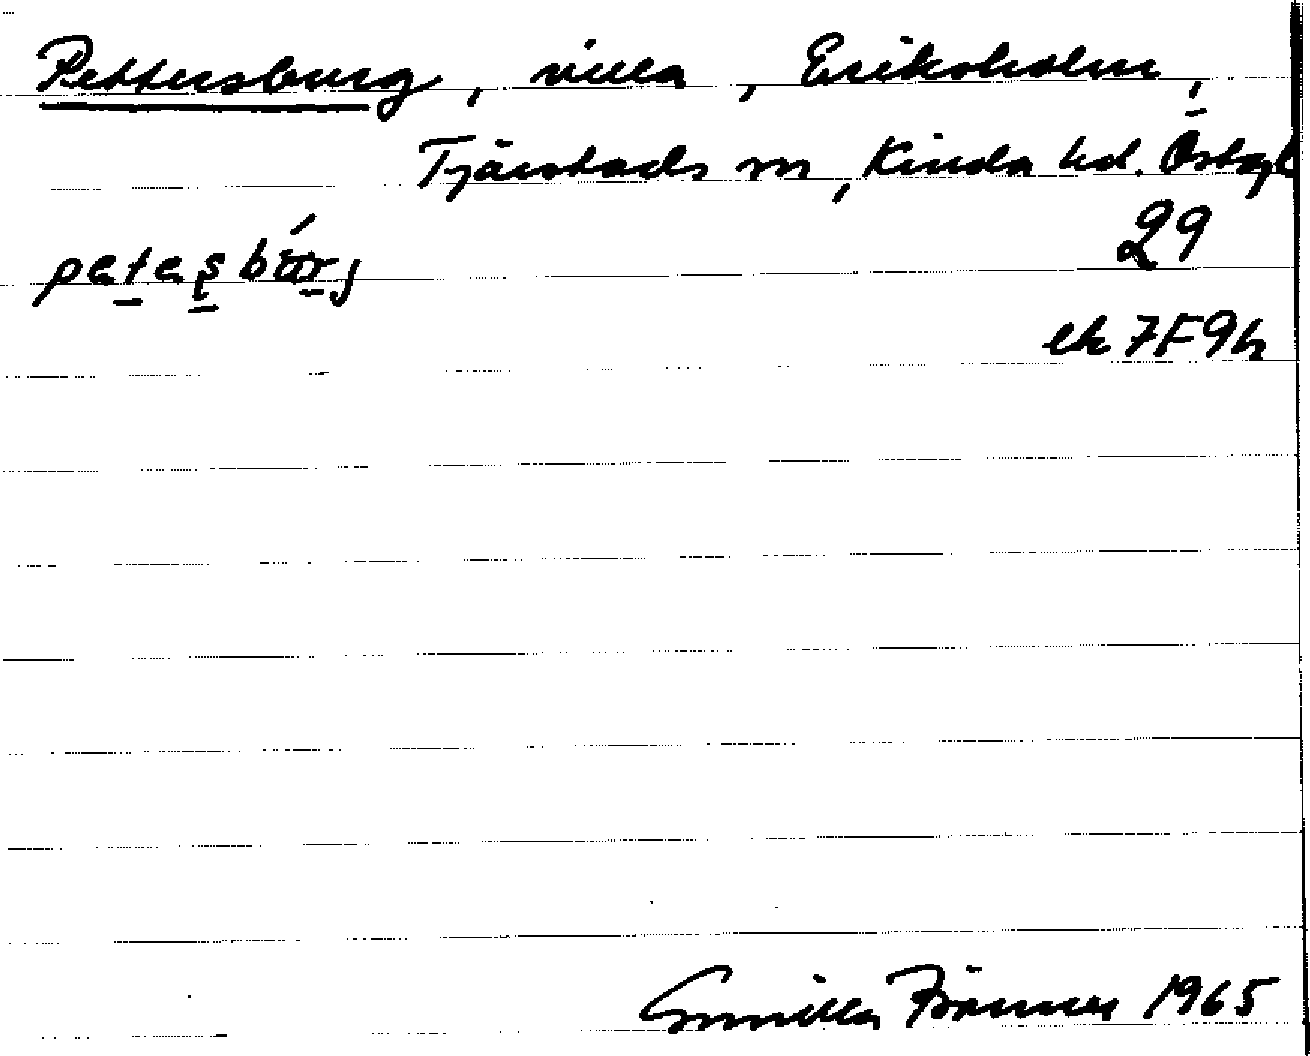 Pettersburg, villa, Eriksholm,
Tjärstads sn, Kinda hd. Östgl
29
petesbórj
ek 7F9h
Gunilla 1965